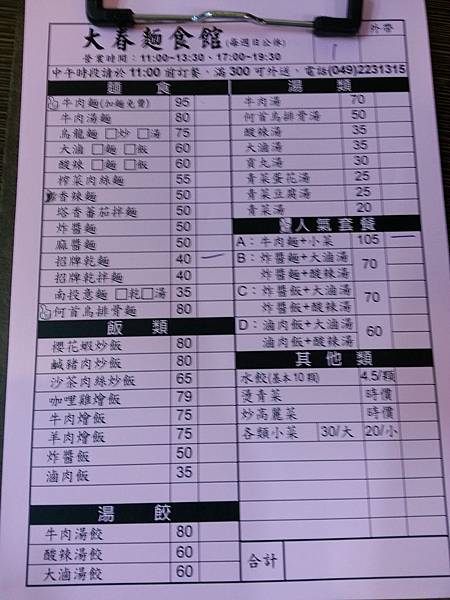 大春麵食館(每週日公休)
外帶
營業時間：11:00~13:30、17:00~19:30
中午時段請於11:00前訂餐，滿300可外送，電話(049)2231315
麵 食
牛肉麵(加麵免費) 95
牛肉湯麵 80
烏龍麵 □炒 □湯 75
大滷 □麵 □飯 60
酸辣 □麵 □飯 60
榨菜肉絲麵 55
香辣麵 50
塔香蕃茄拌麵 50
炸醬麵 50
麻醬麵 50
招牌乾麵 40
招牌乾拌麵 40
南投意麵 □乾□湯 35
何首烏排骨麵 80
飯 類
櫻花蝦炒飯 80
鹹豬肉炒飯 80
沙茶肉絲炒飯 65
咖哩雞燴飯 79
牛肉燴飯 75
羊肉燴飯 75
炸醬飯 50
滷肉飯 35
湯 餃
牛肉湯餃 80
酸辣湯餃 60
大滷湯餃 60
湯 類
牛肉湯 70
何首烏排骨湯 50
酸辣湯 35
大滷湯 35
貢丸湯 30
青菜蛋花湯 25
青菜豆腐湯 25
青菜湯 20
人氣套餐
A：牛肉麵+小菜 105
B：炸醬麵+大滷湯
炸醬麵+酸辣湯 70
C：炸醬飯+大滷湯
炸醬飯+酸辣湯 70
D：滷肉飯+大滷湯
滷肉飯+酸辣湯 60
其 他 類
水餃(基本10顆) 4.5/顆
燙青菜 時價
炒高麗菜 時價
各類小菜 30/大 20/小
合計